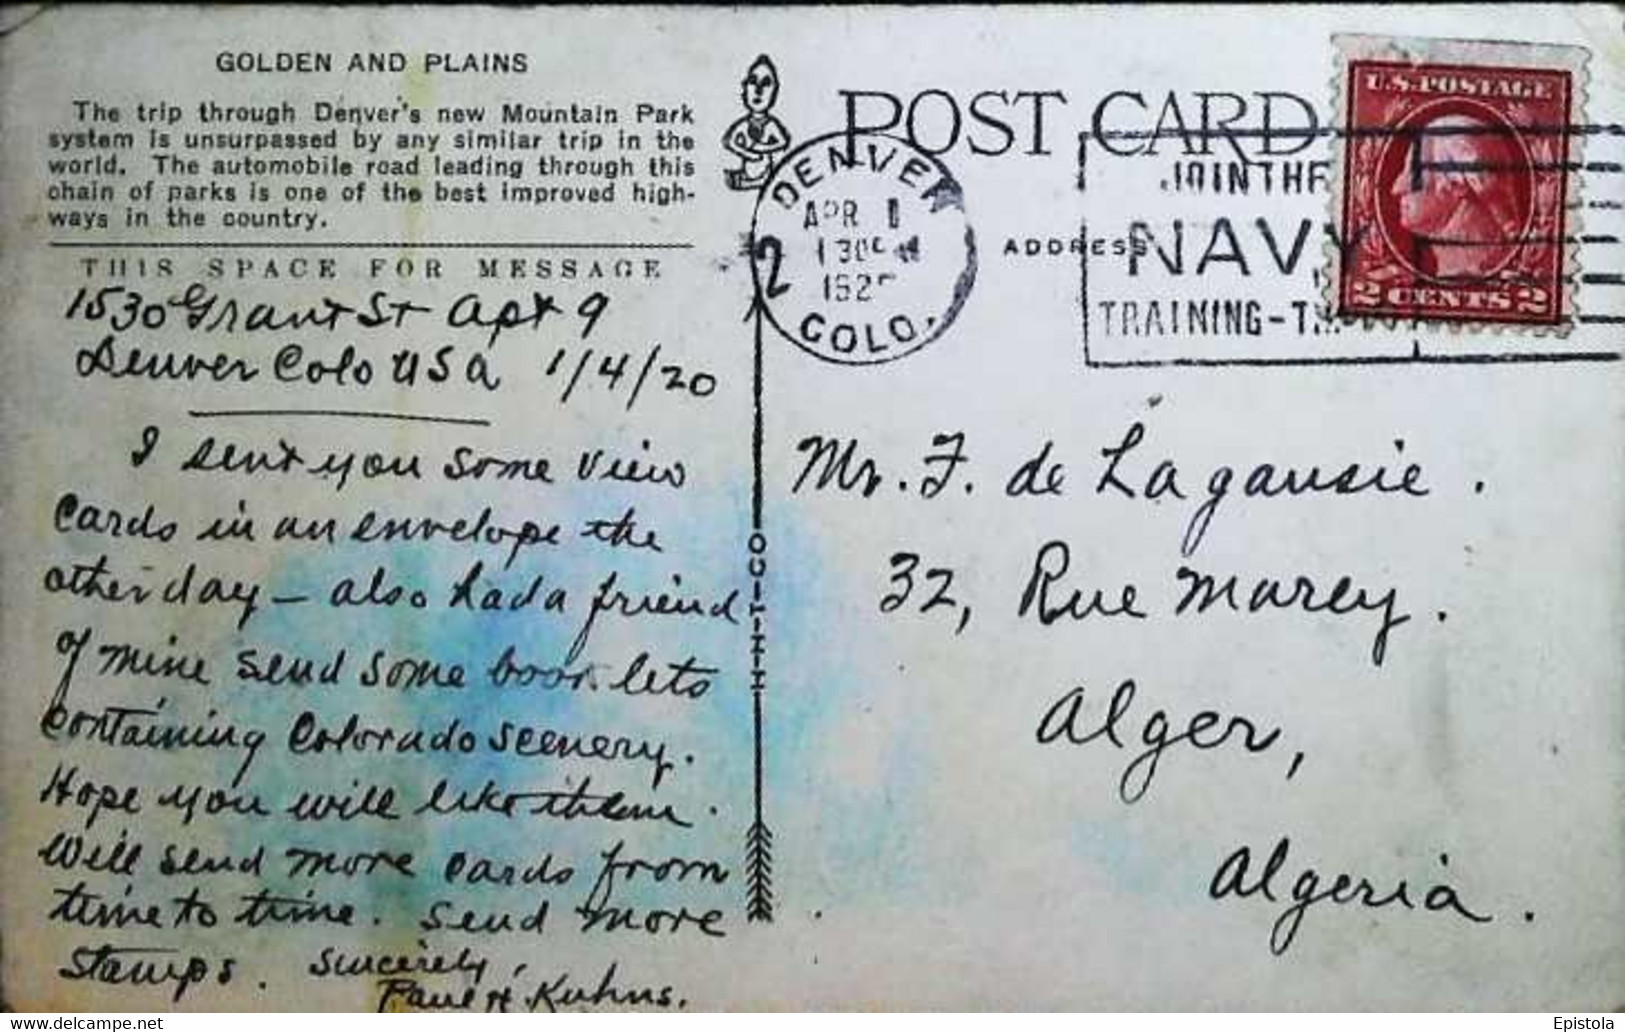 GOLDEN AND PLAINS
The trip through Denver's new Mountain Park
system is unsurpassed by any similar trip in the
world. The automobile road leading through this
chain of parks is one of the best improved high-
ways in the country.
THIS SPACE FOR MESSAGE
1530 Grant St Apt 9
Denver Colo USA 1/4/20
I sent you some view
cards in an envelope the
other day – also had a friend
of mine send some booklets
containing Colorado scenery.
Hope you will like them.
Will send more cards from
time to time. Send more
stamps. Sincerely,
Paul H. Kuhns.
H-H-T-CO
POST CARD
ADDRESS
DENVER
APR 1
COLO.
2
JOIN THE
NAVY
TRAINING-
U.S. POSTAGE
2 CENTS 2
Mr. F. de Lagausie.
32, Rue Marey.
Alger,
Algeria.
delcampe.net
Epistola